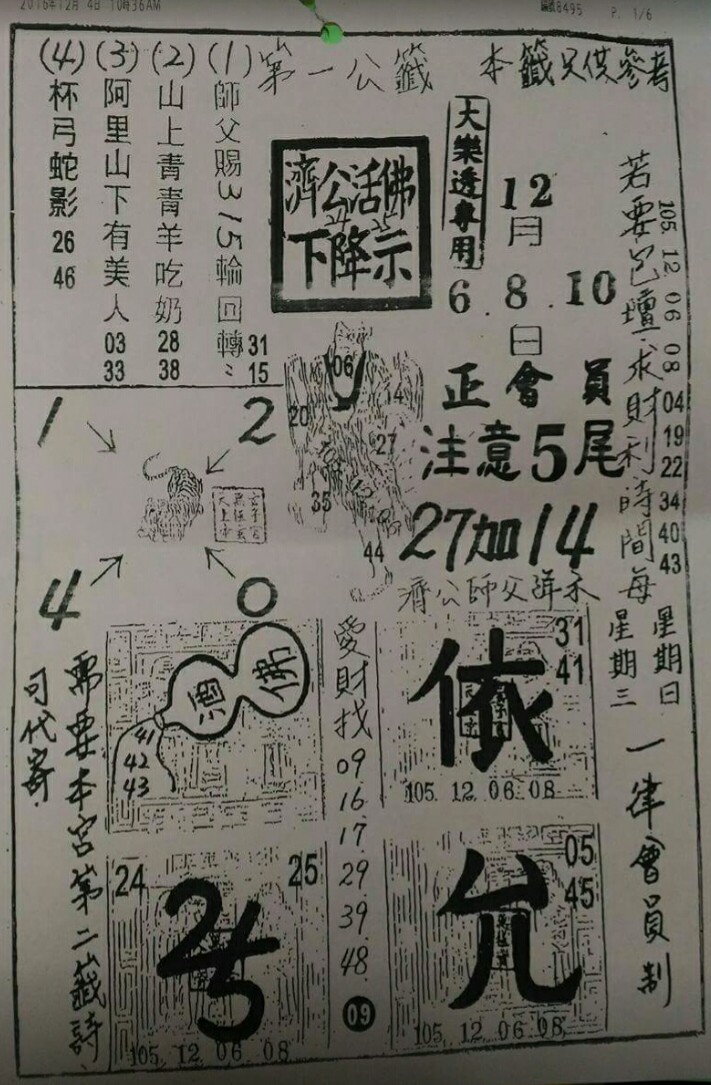 2016年12月 4日 10時36AM
編號8495 P. 1/6
第一公籤
本籤只供參考
(1)師父賜315輪回轉
31
15
(2)山上青青羊吃奶
28
38
(3)阿里山下有美人
03
33
(4)杯弓蛇影
26
46
濟公活佛
下降示
大樂透專用
12
月
6.8.10
日
正會員
注意5尾
27加14
濟公師父降示
06
14
20
27
35
44
1
2
4
0
若要包壇求財利時間每
星期日
星期三
一律會員制
105.12.06 08
04
19
22
34
40
43
需要本宮第二籤詩
可代寄
佛
酒
41
42
43
愛財找
09
16
17
29
39
48
09
31
41
依
105.12.06.08
24
25
105.12.06 08
05
45
允
105.12.06.08